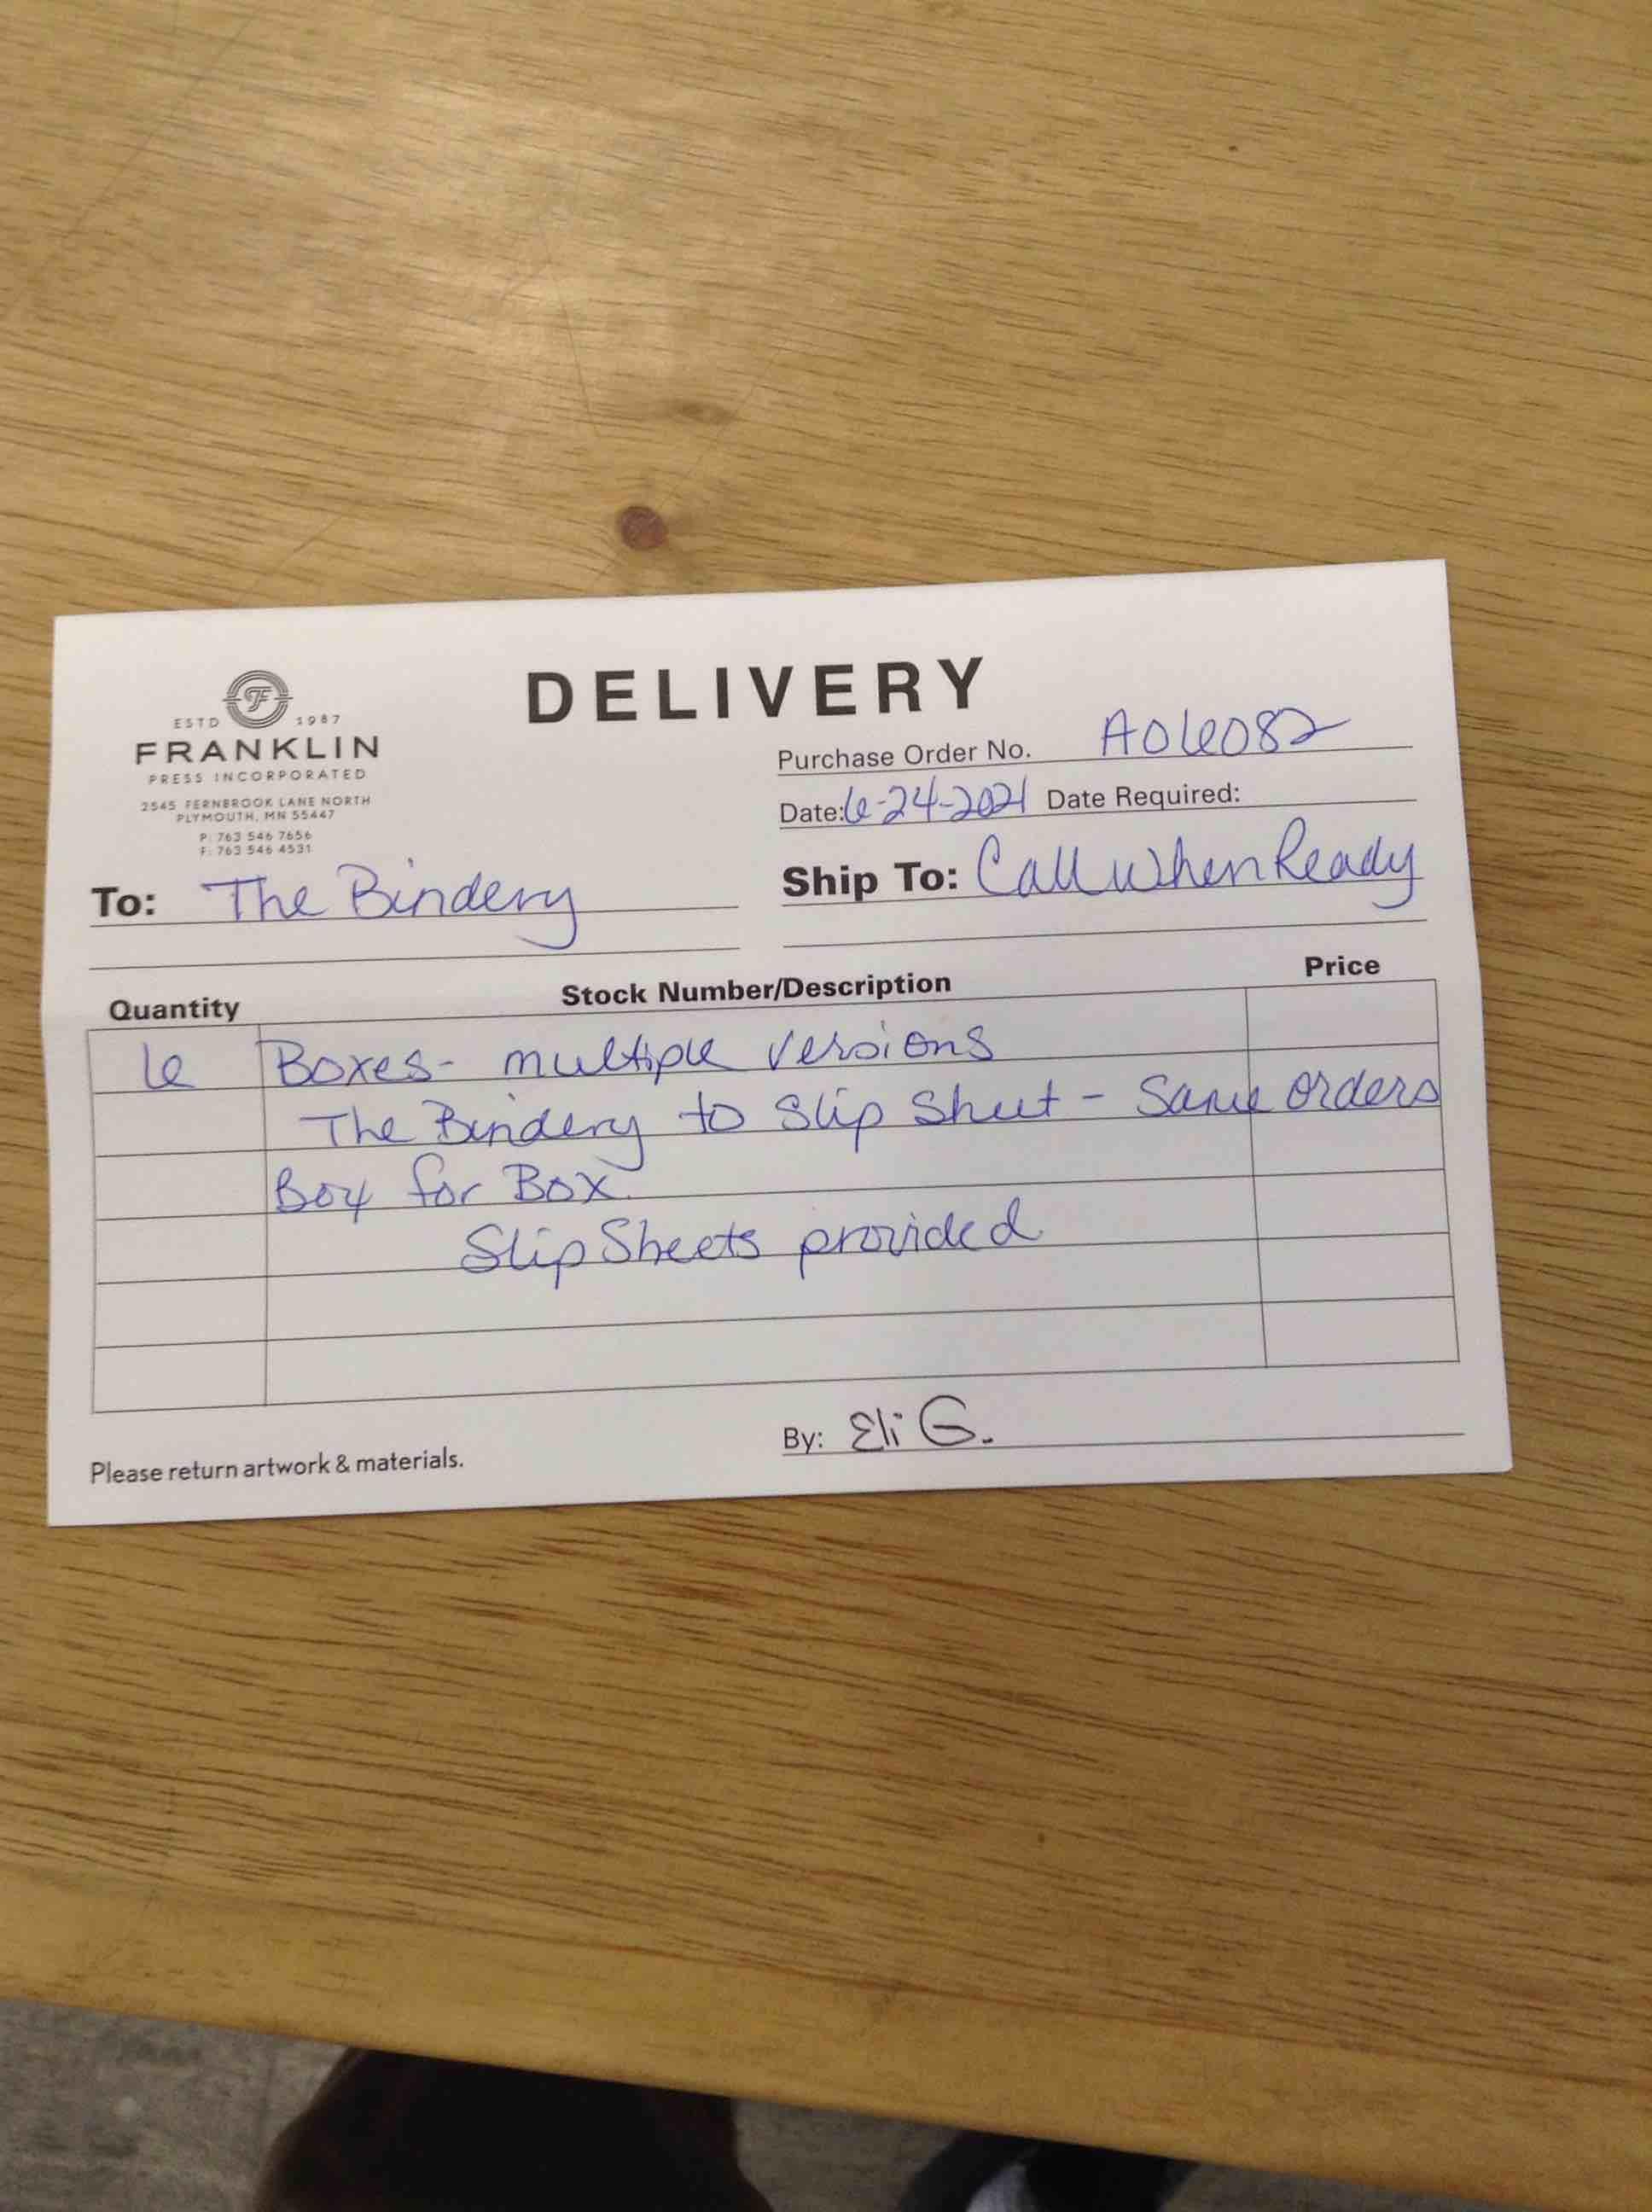 ESTD 1987
FRANKLIN
PRESS INCORPORATED
2545 FERNBROOK LANE NORTH
PLYMOUTH, MN 55447
P: 763 546 7656
F: 763 546 4531
DELIVERY
Purchase Order No. A06082
Date: 6-24-2021 Date Required:
To: The Bindery
Ship To: Call When Ready
Quantity Stock Number/Description Price
6 Boxes - multiple versions
The Bindery to Slip Sheet - Same orders
Box for Box.
Slip Sheets provided
Please return artwork & materials.
By: Eli G.